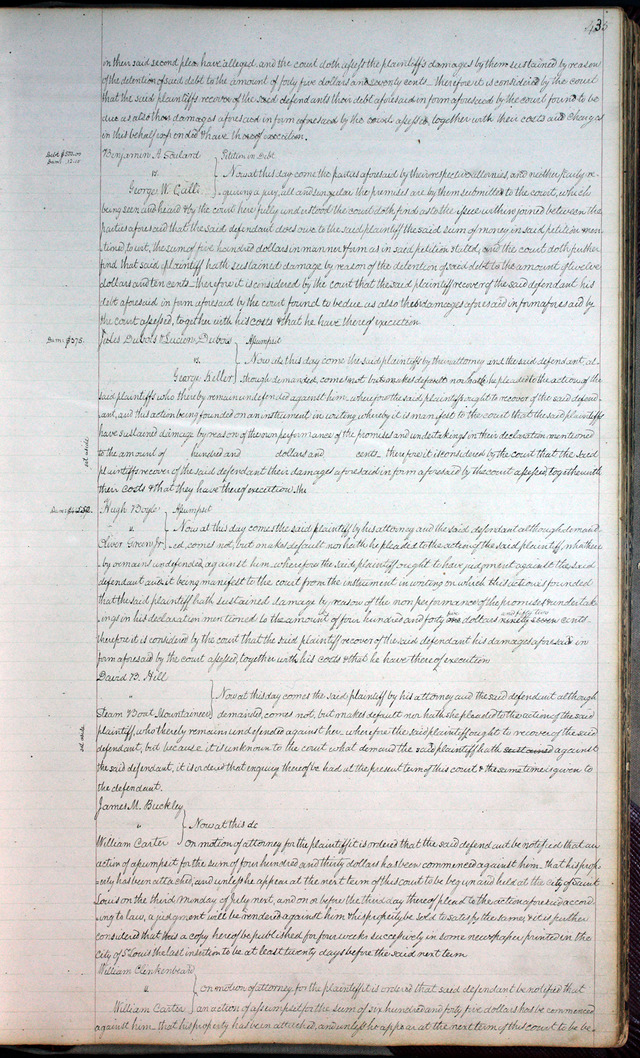 435
in their said second plea have alleged, and the court doth assess the plaintiffs damages by them sustained by reason
of the detention of said debt to the amount of forty five dollars and seventy cents – therefore it is considered by the court
that the said plaintiffs recover of the said defendants their debt aforesaid in form aforesaid by the court found to be
due as also their damages aforesaid in form aforesaid by the court assessed, together with their costs and charges
in this behalf expended & have thereof execution.
Debt $500.00
Dam. 12.10
Benjamin A. Soulard } Petition in Debt
vs } Now at this day come the parties aforesaid by their respective attornies, and neither party re-
George W. Call } quiring a jury, all and singular the premises are by them submitted to the court, which
being seen and heard & by the court here fully understood the court doth find as to the issue within joined between the
parties aforesaid that the said defendant does owe to the said plaintiff the said sum of money in said petition men-
tioned, to wit, the sum of five hundred dollars in manner & form as in said petition stated, and the court doth further
find that said plaintiff hath sustained damage by reason of the detention of said debt to the amount of twelve
dollars and ten cents – therefore it is considered by the court that the said plaintiff recover of the said defendant his
debt aforesaid in form aforesaid by the court found to be due as also the damages aforesaid in form aforesaid by
the court assessed, together with his costs & that he have thereof execution
Dam. $375.
Jules Dubois & Lucien Dubois } Assumpsit
vs. } Now at this day come the said plaintiffs by their attorney and the said defendant, al-
George Keller } though demanded, comes not but makes default nor hath he pleaded to the action of the
said plaintiffs who thereby remain undefended against him wherefore the said plaintiffs ought to recover of the said defend-
ant, and this action being founded on an instrument in writing whereby it is manifest to the court that the said plaintiffs
have sustained damage by reason of the non performance of the promises and undertakings in their declaration mentioned
set aside
to the amount of hundred and dollars and cents – therefore it is considered by the court that the said
plaintiffs recover of the said defendant their damages aforesaid in form aforesaid by the court assessed together with
their costs & that they have thereof execution the
Hugh Boyle } Assumpsit
" } Now at this day comes the said plaintiff by his attorney and the said defendant although demand-
Oliver Green Jr } ed, comes not, but makes default nor hath he pleaded to the action of the said plaintiff, who there
by remains undefended against him wherefore the said plaintiff ought to have judgment against the said
defendant and it being manifest to the court from the instrument in writing on which this action is founded
that the said plaintiff hath sustained damage by reason of the non performance of the promises & undertak-
ings in his declaration mentioned to the amount of four hundred and forty one dollars ninety seven cents.
therefore it is considered by the court that the said plaintiff recover of the said defendant his damages aforesaid in
form aforesaid by the court assessed, together with his costs & that he have thereof execution
David B. Hill
" } Now at this day comes the said plaintiff by his attorney and the said defendant although
Steam Boat Mountaineer } demanded, comes not, but makes default nor hath she pleaded to the action of the said
plaintiff, who thereby remain undefended against her, wherefore the said plaintiff ought to recover of the said
set aside
defendant, but because it is unknown to the court what demand the said plaintiff hath sustained against
the said defendant, it is ordered that enquiry thereof be had at the present term of this court & the same time is given to
the defendant.
James M. Buckley
" } Now at this da
William Carter } on motion of attorney for the plaintiff it is ordered that the said defendant be notified that an
action of assumpsit for the sum of four hundred and thirty dollars has been commenced against him – that his prop-
erty has been attached, and unless he appear at the next term of this court to be begun and held at the city of Saint
Louis on the third Monday of July next, and on or before the third day thereof plead to the action aforesaid accord-
ing to law, a judgment will be rendered against him & his property be sold to satisfy the same, & it is further
considered that this a copy hereof be published for four weeks successively in some newspaper printed in the
city of St Louis the last insertion to be at least twenty days before the said next term
William Clinkenbeard
" } on motion of attorney for the plaintiff it is ordered that said defendant be notified that
William Carter } an action of assumpsit for the sum of six hundred and forty five dollars has be commenced
against him – that his property has been attached, and unless he appear at the next term of this court to be be-